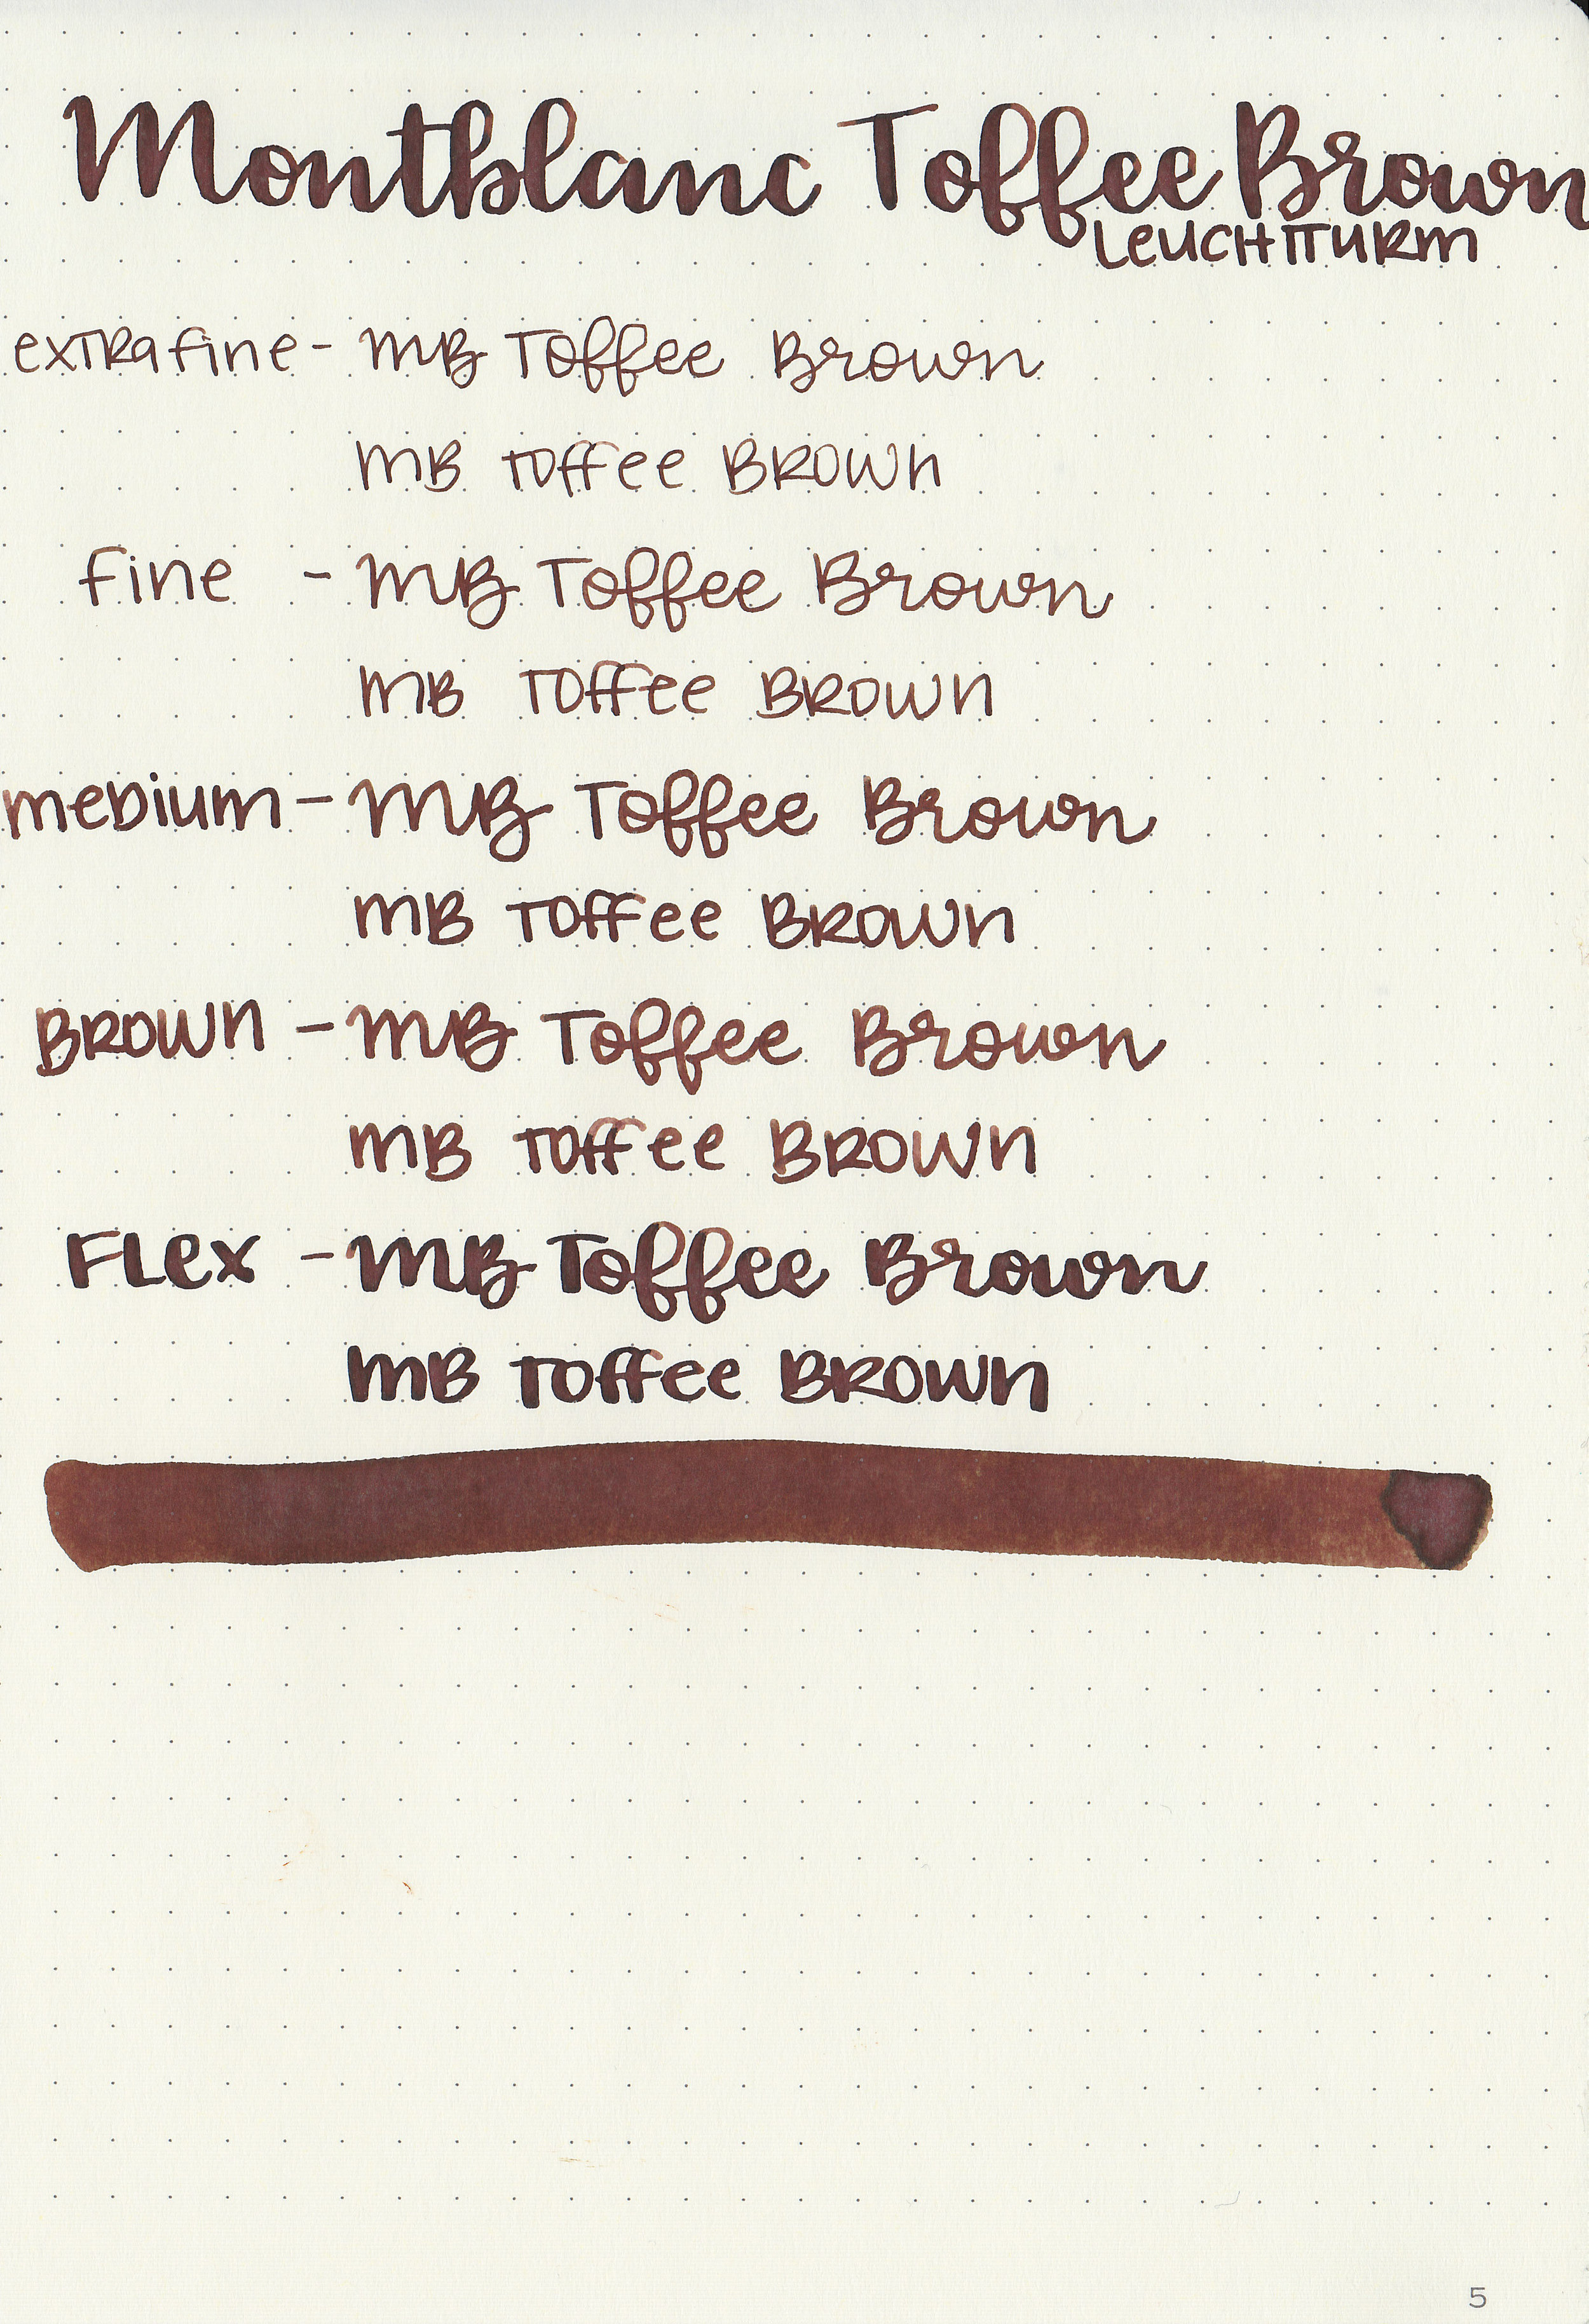 Montblanc Toffee Brown
Leuchtturm
extra fine - MB Toffee Brown
MB Toffee BROWN
fine - MB Toffee Brown
MB Toffee BROWN
medium - MB Toffee Brown
MB Toffee BROWN
BROWN - MB Toffee Brown
MB Toffee BROWN
FLex - MB Toffee Brown
MB Toffee BROWN
5